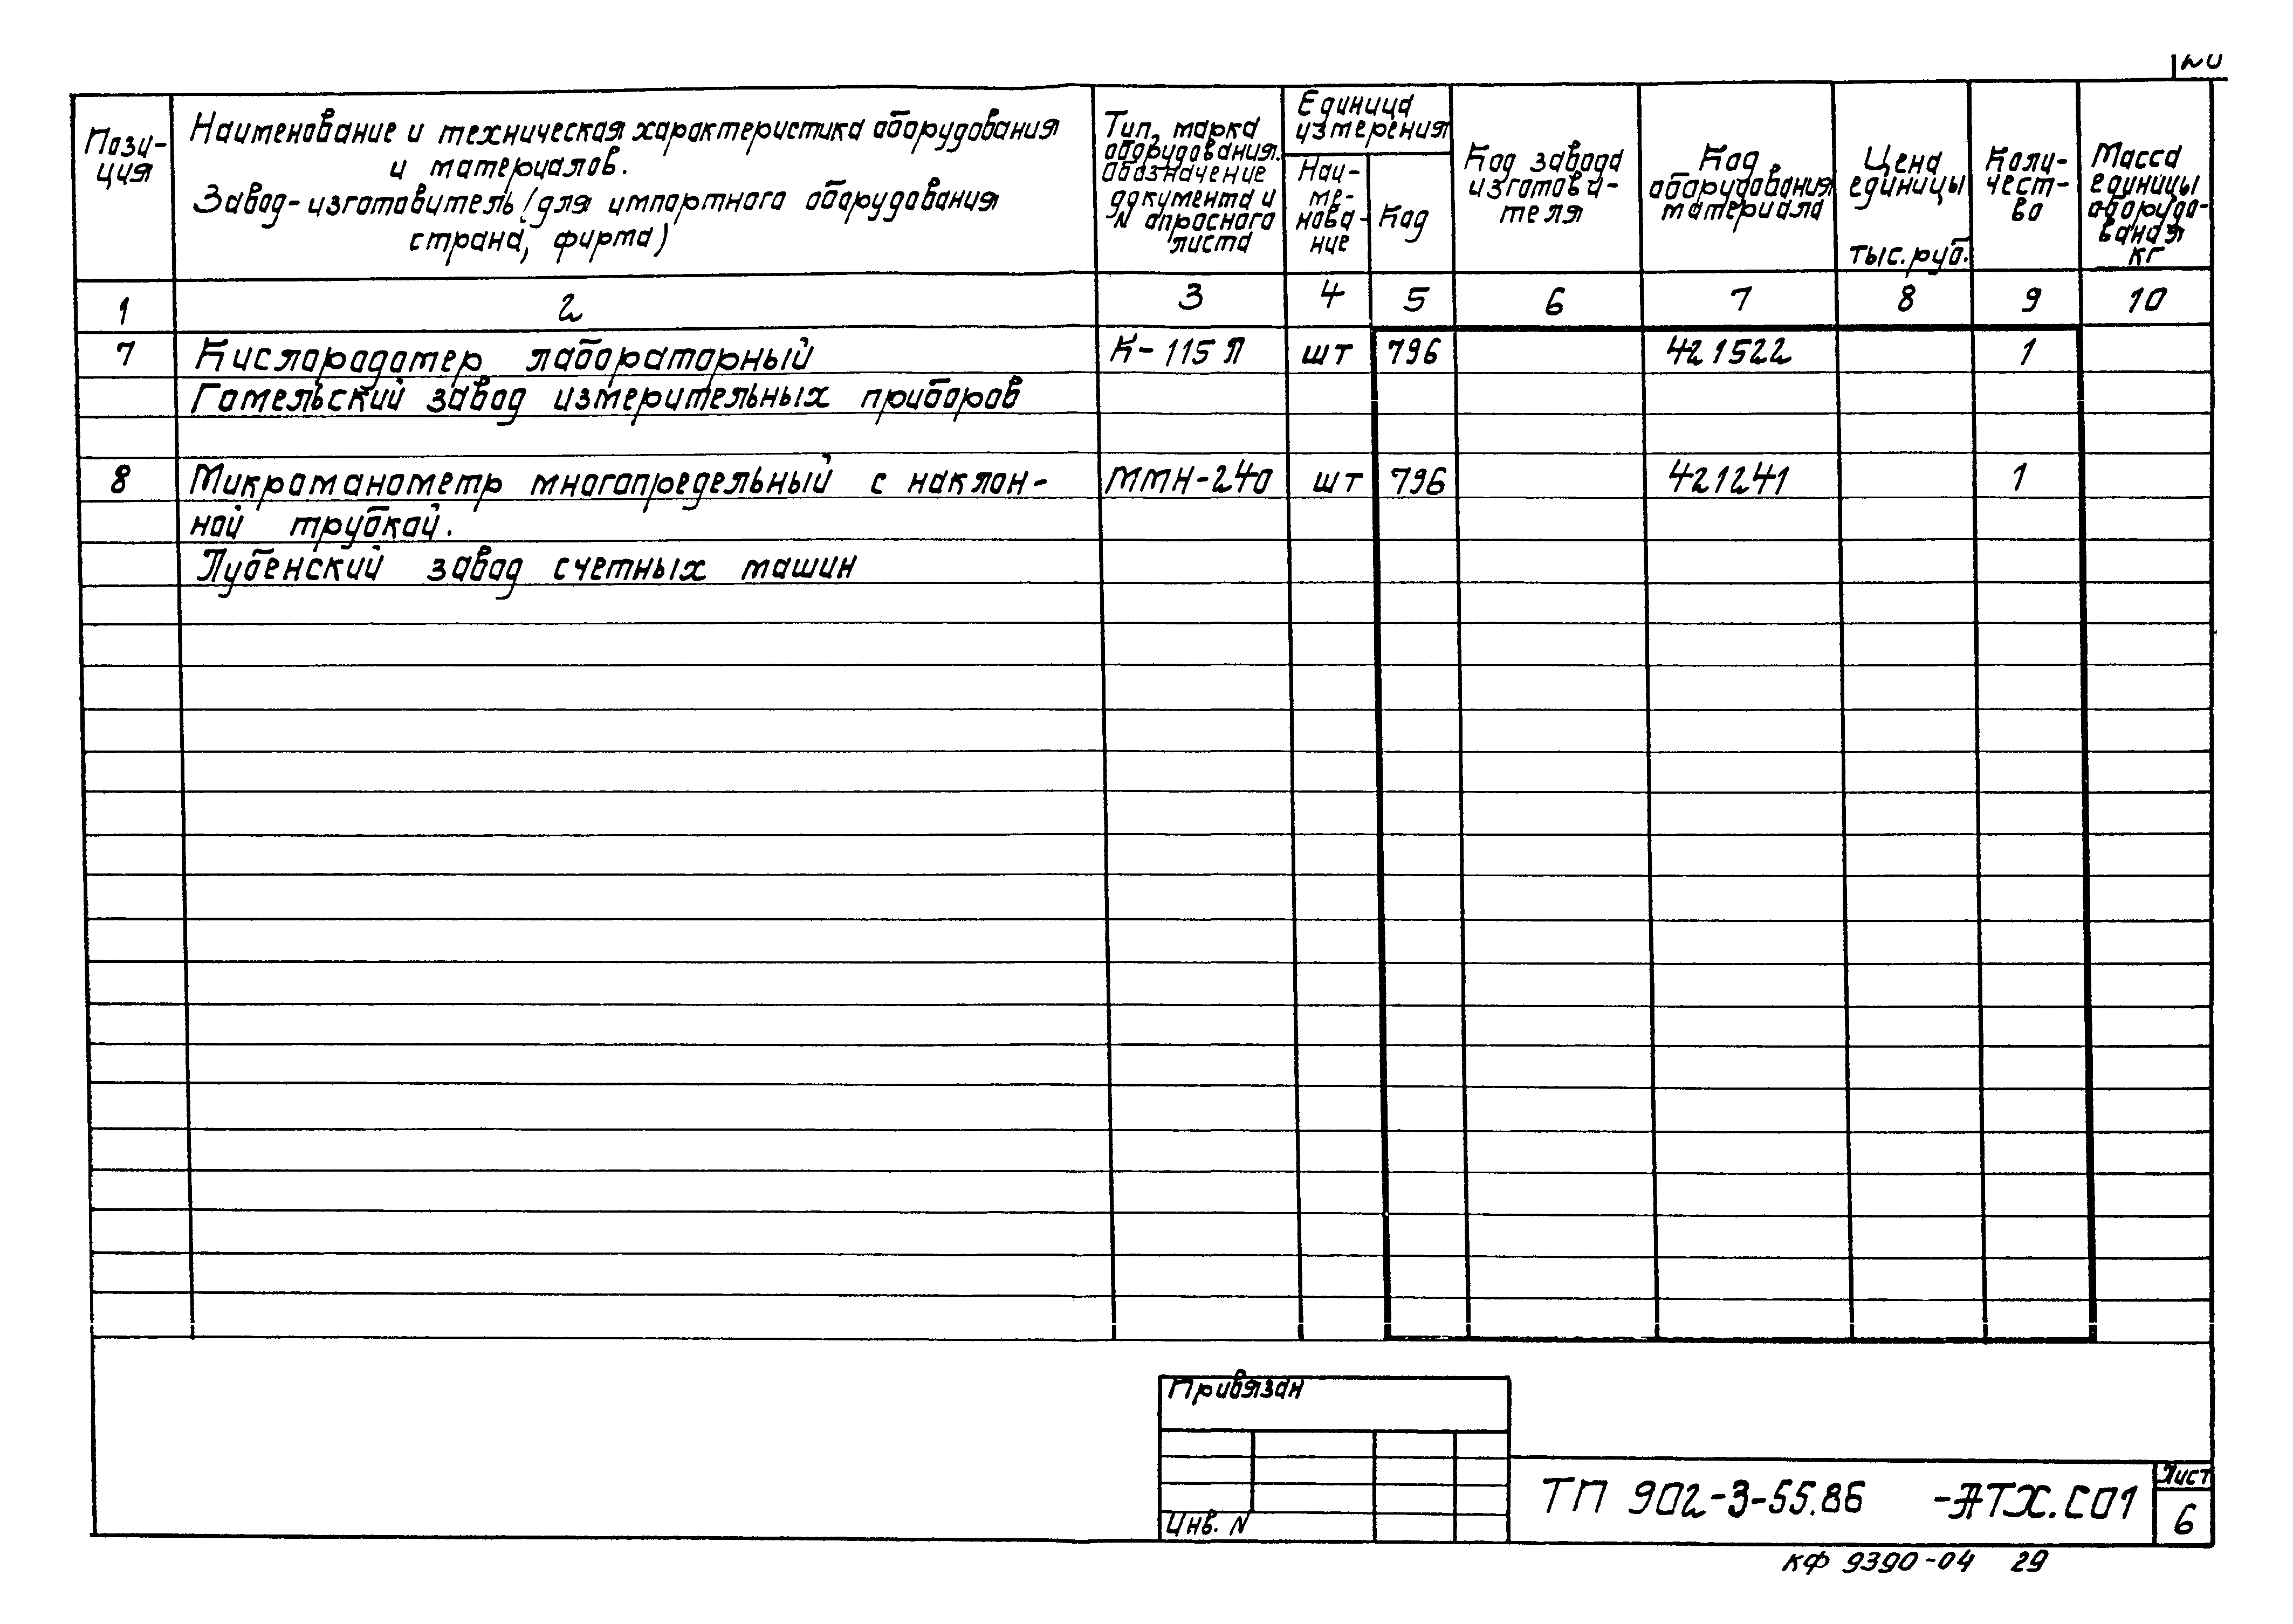 Пози-
ция
Наименование и техническая характеристика оборудования
и материалов.
Завод-изготовитель (для импортного оборудования
страна, фирма)
Тип, марка
оборудования.
Обозначение
документа и
N опросного
листа
Единица
измерения
Наи-
ме-
нова-
ние
Код
Код завода
изготови-
теля
Код
оборудования
материала
Цена
единицы
тыс. руб.
Коли-
чест-
во
Масса
единицы
оборудо-
вания
кг
1 2 3 4 5 6 7 8 9 10
7 Кислородомер лабораторный К-115 П шт 796 421522 1
Гомельский завод измерительных приборов
8 Микроманометр многопредельный с наклон- ММН-240 шт 796 421241 1
ной трубкой.
Лубенский завод счетных машин
Привязан
Инв. N
ТП 902-3-55.86 -АТХ.СО1
Лист
6
КФ 9390-04 29